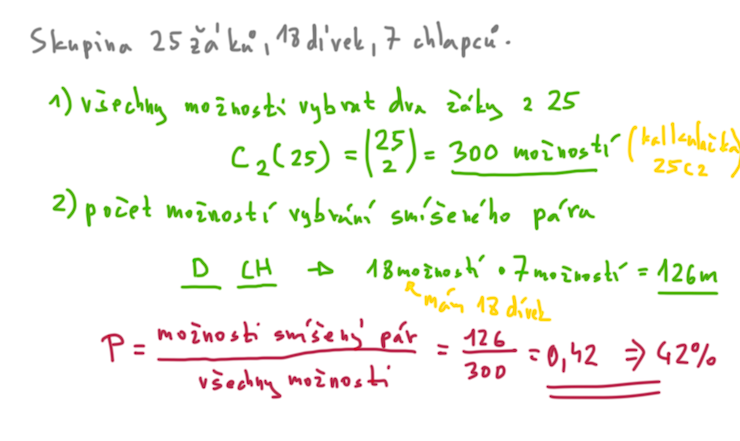 Skupina 25 žáků, 18 dívek, 7 chlapců.
1) všechny možnosti vybrat dva žáky z 25
C₂(25) = (25 2) = 300 možností (kalkulačka
25C2)
2) počet možností vybrání smíšeného páru
D CH → 18 možností · 7 možností = 126 m
mám 18 dívek
P = možnosti smíšený pár / všechny možnosti = 126 / 300 = 0,42 ⇒ 42%